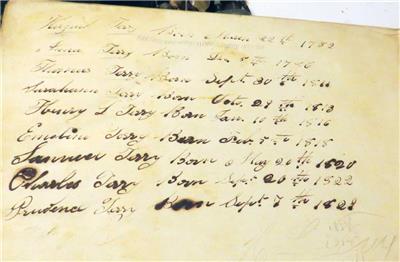 Terry Born March 22th 1782
Anna Terry Born Dec 5th
Thomas Terry Born Sept 30th 1811
Terry Born Octo. 28th 1813
Henry L Terry Born Jan. 10th 1816
Emeline Terry Born Feb. 5th 1818
Terry Born May 20th 1820
Charles Terry Born Sept 20th 1822
Prudence Terry Born Sept 7th 1828